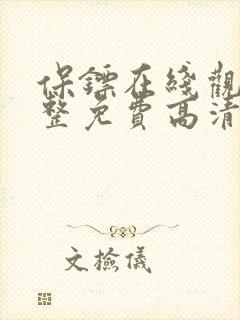 保鏢在綫觀
整免費高清
文檢儀